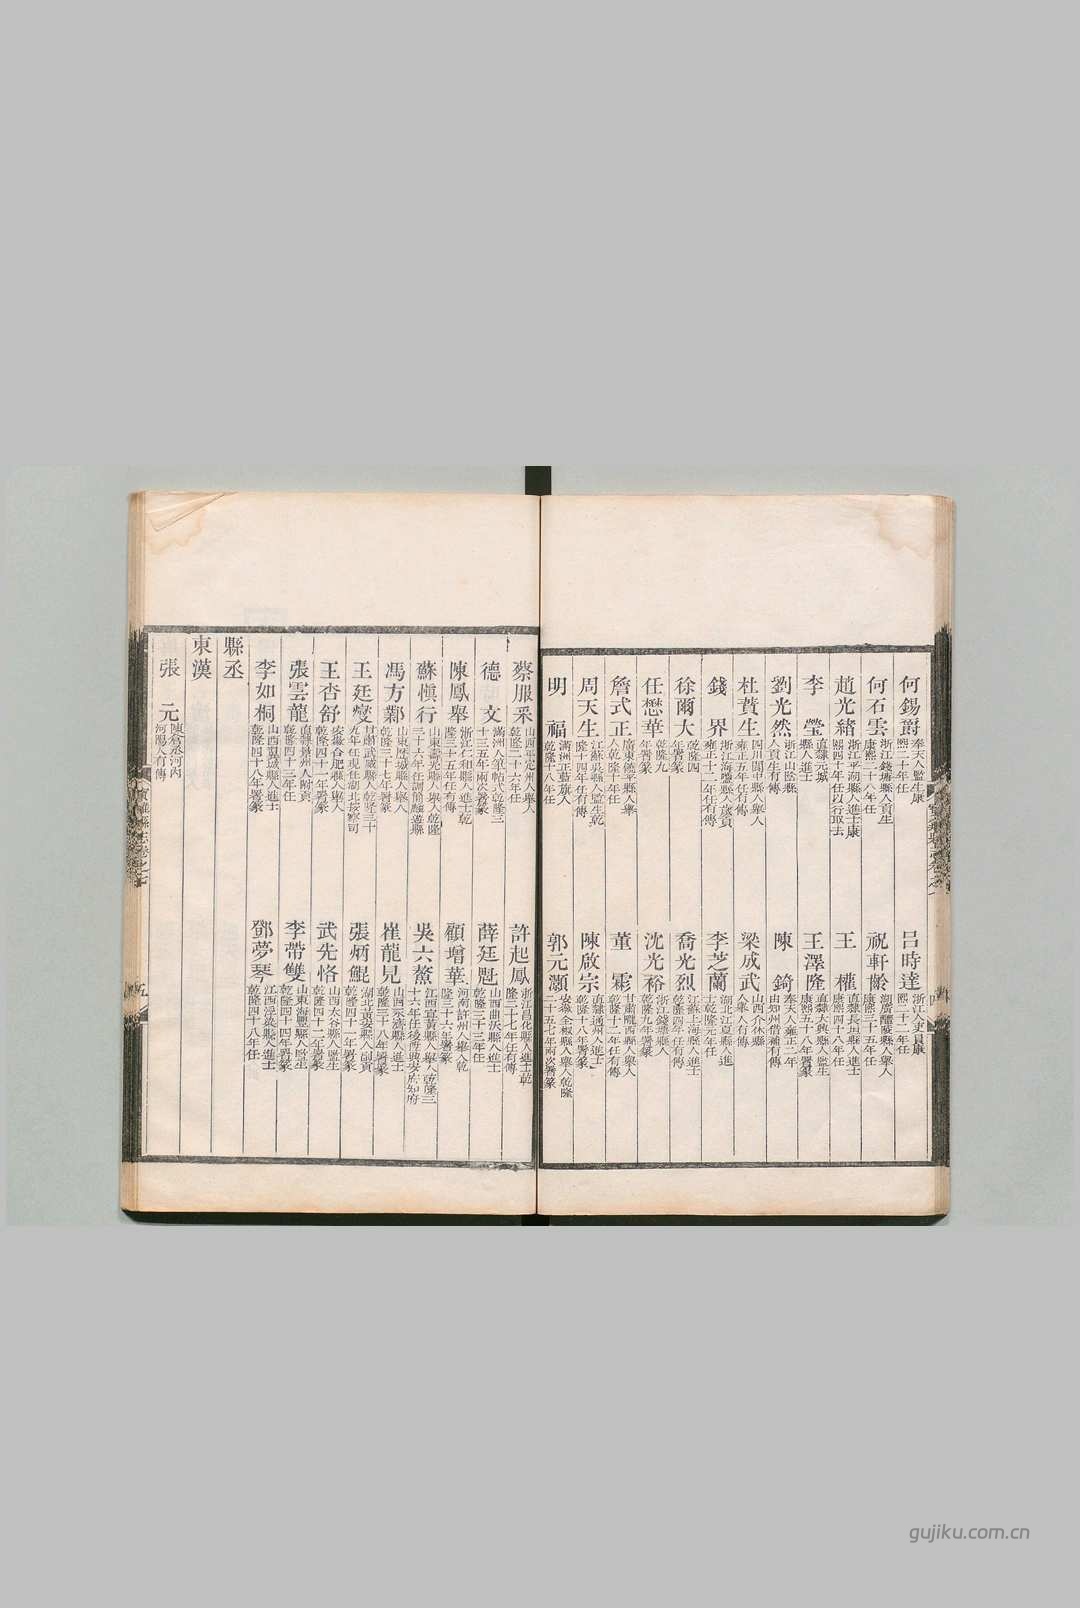 何錫爵 奉天人監生康熙二十年任 呂時達 浙江人吏員康熙二十二年任
何石雲 浙江錢塘縣人貢生康熙二十八年任 祝軒齡 湖廣醴陵縣人舉人康熙三十五年任
趙光緒 浙江平湖縣人進士康熙四十年任以行取去 王權 直隸長垣縣人進士康熙四十八年任
李瑩 直隸元城縣人進士 王澤隆 直隸大興縣人監生康熙五十八年署篆
劉光然 浙江山陰縣人貢生有傳 陳錡 奉天人雍正二年由知州借補有傳
杜蕡生 四川閬中縣人舉人雍正五年任有傳 梁成武 山西介休縣人舉人有傳
錢界 浙江海鹽縣人歲貢雍正十二年任有傳 李芝蘭 湖北江夏縣人進士乾隆元年任
徐爾大 乾隆四年署篆 喬光烈 江蘇上海縣人進士乾隆四年任有傳
任懋華 乾隆九年署篆 沈光裕 浙江錢塘人乾隆九年署篆
詹式正 廣東饒平縣人舉人乾隆十年任 董霢 甘肅隴西縣人舉人乾隆十二年任有傳
周天生 江蘇吳縣人監生乾隆十四年任有傳 陳啟宗 直隸通州人進士乾隆十八年署篆
明福 滿洲正藍旗人乾隆十八年任 郭元灝 安徽全椒縣人舉人乾隆二十五七年兩次署篆
蔡服采 山西平定州人舉人乾隆二十六年任 許起鳳 浙江昌化縣人進士乾隆二十七年任有傳
德文 滿洲人筆帖式乾隆三十三五年兩次署篆 薛廷尯 山西曲沃縣人進士乾隆三十三年任
陳鳳舉 浙江仁和縣人進士乾隆三十五年任有傳 顧增華 河南許州人舉人乾隆三十六年署篆
蘇愼行 山東壽光縣人舉人乾隆三十六年任調簡緣邊縣 吳六鰲 江西宜黃縣人舉人乾隆三十六年任後陞興安府知府
馮方鄴 山東歷城縣人舉人乾隆三十七年署篆 崔龍見 山西永濟縣人進士乾隆三十八年署篆
王廷燮 甘肅武威縣人乾隆三十九年任現任湖北按察司 張炳鯤 湖北黃安縣人副貢乾隆四十一年署篆
王杏舒 安徽合肥縣人舉人乾隆四十一年署篆 武先恪 山西太谷縣人監生乾隆四十二年署篆
張雲龍 直隸景州人附貢乾隆四十三年任 李帶雙 山東海豐縣人監生乾隆四十四年署篆
李如桐 山西翼城縣人進士乾隆四十八年署篆 鄧夢琴 江西浮梁縣人進士乾隆四十八年任
縣丞
東漢
張元 陳倉丞河內河陽人有傳
寶雞縣志卷之
五
gujiku.com.cn